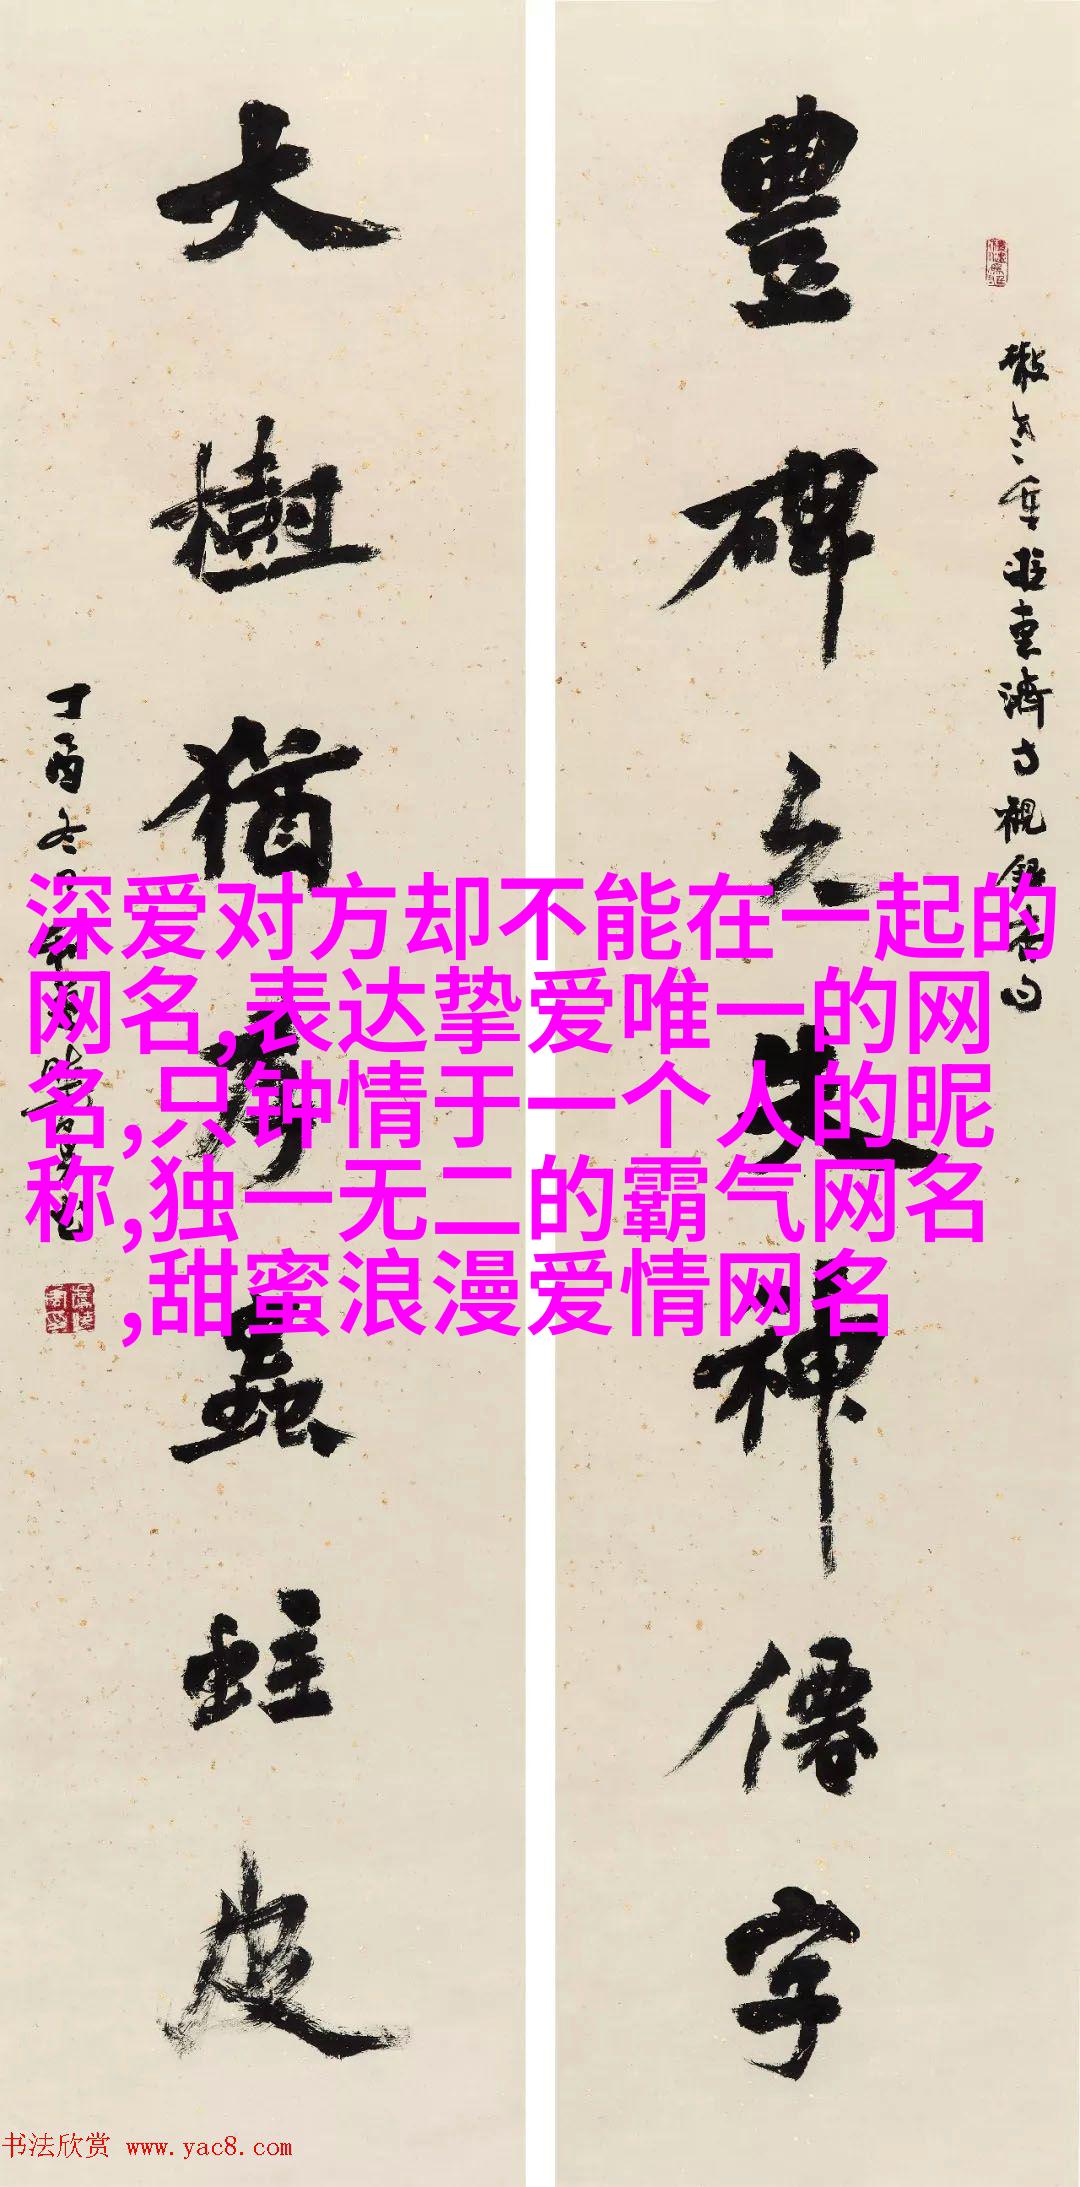 豊碑久失神僊字
大樹猶存蠧蛀皮
深爱对方却不能在一起的
网名,表达挚爱唯一的网
名,只钟情于一个人的昵
称,独一无二的霸气网名
,甜蜜浪漫爱情网名
书法欣赏 www.yac8.com